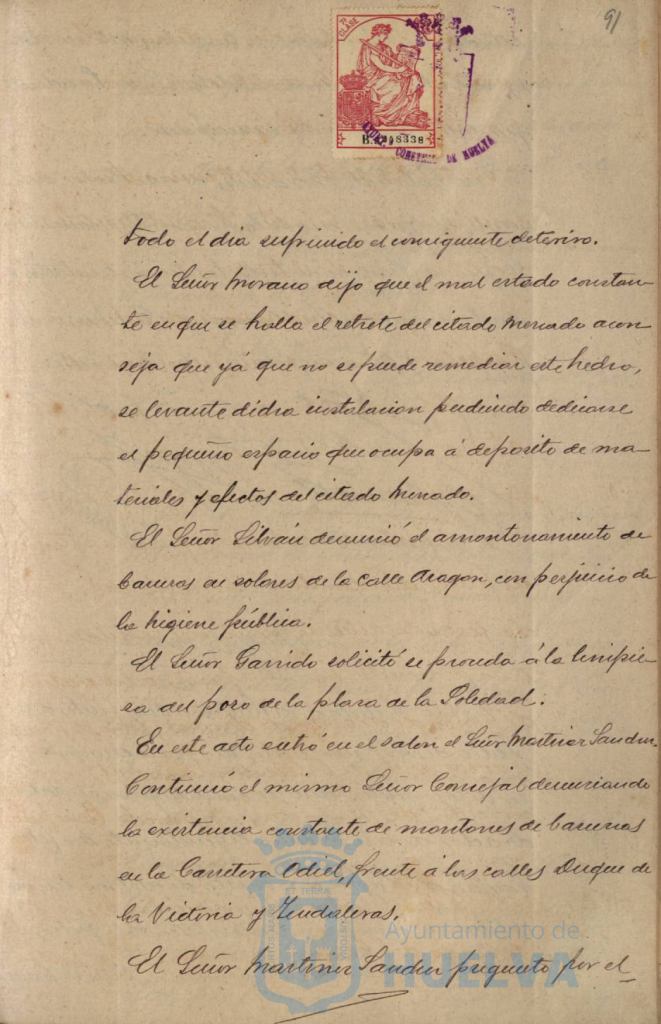 91
7ª CLASE
B.
8338
AYUNT. CONSTNAL DE HUELVA
todo el dia sufriendo el consiguiente deterioro.
El Señor Morano dijo que el mal estado constan-
te en que se halla el retrete del citado Mercado acon
seja que yá que no se puede remediar este hecho,
se levante dicha instalacion pudiendo dedicarse
el pequeño espacio que ocupa á deposito de ma-
teriales y efectos del citado Mercado.
El Señor Silván denunció el amontonamiento de
basuras en solares de la calle Aragon, con perjuicio de
la higiene pública.
El Señor Garrido solicitó se proceda á la limpie-
sa del poso de la plasa de la Soledad.
En este acto entró en el salon el Señor Martinez Sandin.
Continuó el mismo Señor Concejal denunciando
la existencia constante de montones de basuras
en la Carretera Odiel, frente á las calles Duque de
la Victoria y Tendaleras.
El Señor Martinez Sandin preguntó por el
Ayuntamiento de
HUELVA